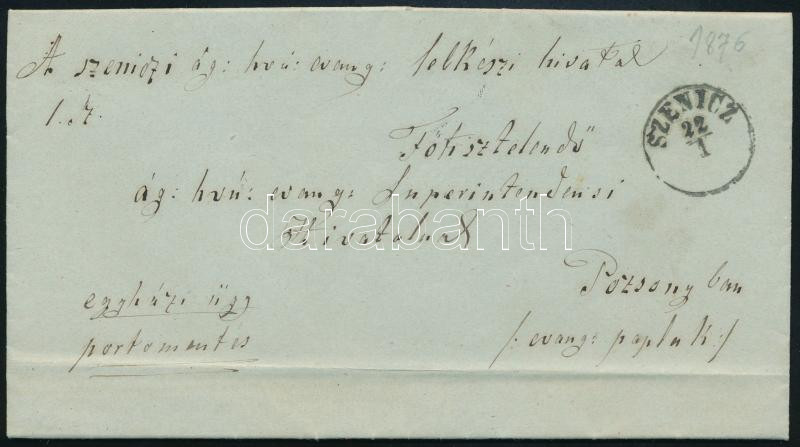 1876
A szeniczi ág: hvú: evang: lelkészi hivatal
SZENICZ
22/1
Főtisztelendő
ág: hvú: evang: Superintendensi
Hivatalnak
darabanth
Pozsonyban
egyházi ügy
portomentes
/: evang: paplak :/